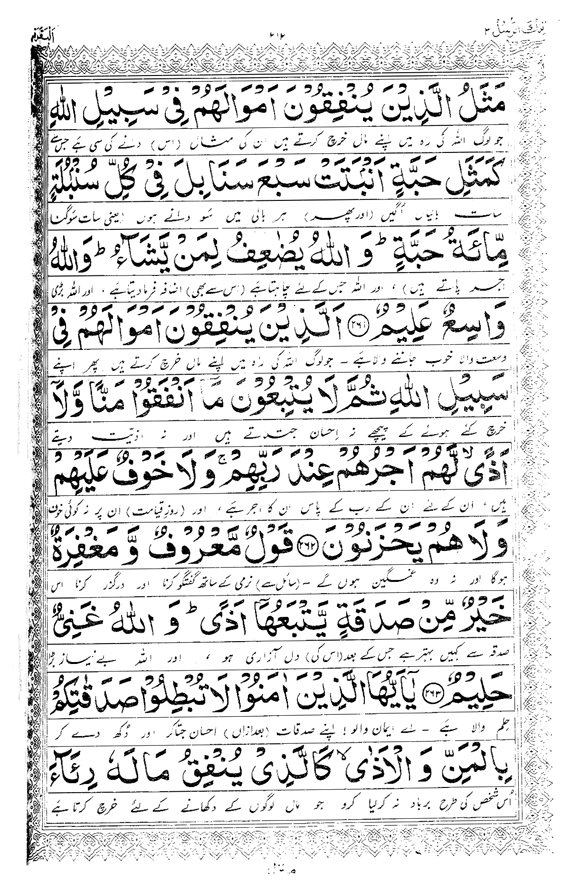 تلك الرسل ٣ ٢١٢ البقرة
مَثَلُ الَّذِيْنَ يُنْفِقُوْنَ اَمْوَالَهُمْ فِيْ سَبِيْلِ اللّٰهِ
جو لوگ اللہ کی راہ میں اپنے مال خرچ کرتے ہیں ان کی مثال (اس) دانے کی سی ہے جس سے
كَمَثَلِ حَبَّةٍ اَنْۢبَتَتْ سَبْعَ سَنَابِلَ فِيْ كُلِّ سُنْۢبُلَةٍ
سات بالیاں اگیں (اور پھر) ہر بالی میں سو دانے ہوں (یعنی سات سو گنا
مِّائَةُ حَبَّةٍ ؕ وَ اللّٰهُ يُضٰعِفُ لِمَنْ يَّشَآءُ ؕ وَاللّٰهُ
اجر پاتے ہیں) ، اور اللہ جس کے لئے چاہتا ہے (اس سے بھی) اضافہ فرما دیتا ہے ، اور اللہ بڑی
وَاسِعٌ عَلِيْمٌ ﴿۲۶۱﴾ اَلَّذِيْنَ يُنْفِقُوْنَ اَمْوَالَهُمْ فِيْ
وسعت والا خوب جاننے والا ہے ۔ جو لوگ اللہ کی راہ میں اپنے مال خرچ کرتے ہیں پھر اپنے
سَبِيْلِ اللّٰهِ ثُمَّ لَا يُتْبِعُوْنَ مَاۤ اَنْفَقُوْا مَنًّا وَّلَاۤ
خرچ کئے ہوئے کے پیچھے نہ احسان جتلاتے ہیں اور نہ اذیت دیتے
اَذًى ۙ لَّهُمْ اَجْرُهُمْ عِنْدَ رَبِّهِمْ ۚ وَلَا خَوْفٌ عَلَيْهِمْ
ہیں ، ان کے لئے ان کے رب کے پاس ان کا اجر ہے ، اور (روزِ قیامت) ان پر نہ کوئی خوف
وَلَا هُمْ يَحْزَنُوْنَ ﴿۲۶۲﴾ قَوْلٌ مَّعْرُوْفٌ وَّ مَغْفِرَةٌ
ہوگا اور نہ وہ غمگین ہوں گے ۔ (سائل سے) نرمی کے ساتھ گفتگو کرنا اور درگزر کرنا اس
خَيْرٌ مِّنْ صَدَقَةٍ يَّتْبَعُهَاۤ اَذًى ؕ وَ اللّٰهُ غَنِيٌّ
صدقہ سے کہیں بہتر ہے جس کے بعد (اس کی) دل آزاری ہو ، اور اللہ بے نیاز بڑا
حَلِيْمٌ ﴿۲۶۳﴾ يٰۤاَيُّهَا الَّذِيْنَ اٰمَنُوْا لَا تُبْطِلُوْا صَدَقٰتِكُمْ
حلم والا ہے ۔ اے ایمان والو ! اپنے صدقات (بعد ازاں) احسان جتا کر اور دُکھ دے کر
بِالْمَنِّ وَ الْاَذٰى ۙ كَالَّذِيْ يُنْفِقُ مَالَهٗ رِئَآءَ
اُس شخص کی طرح برباد نہ کر لیا کرو جو مال لوگوں کے دکھانے کے لئے خرچ کرتا ہے